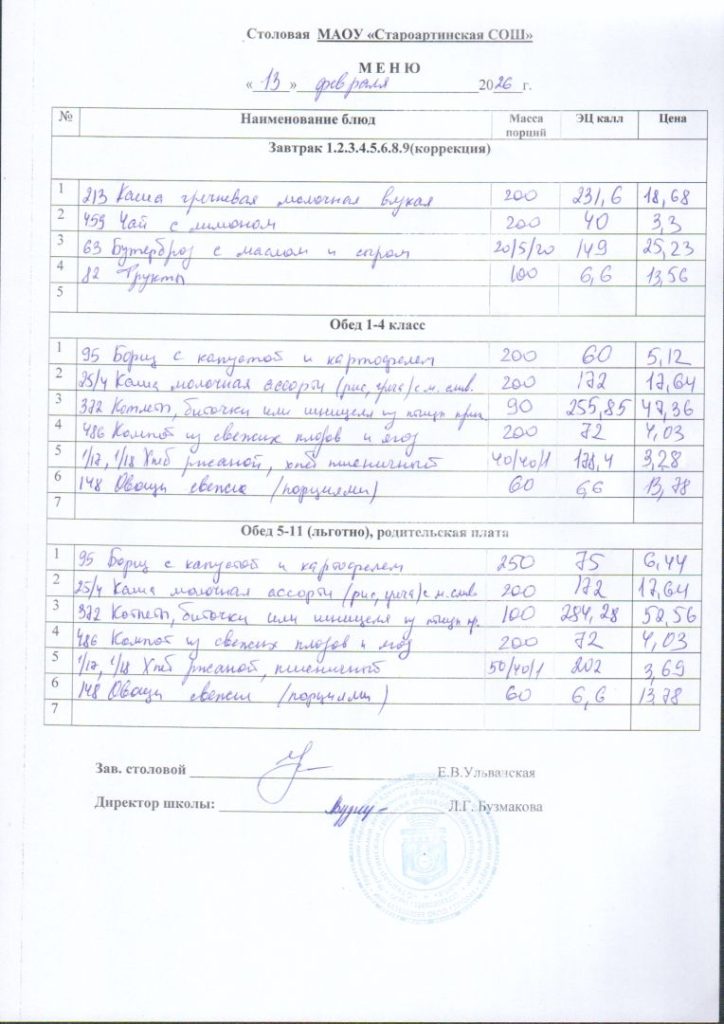 Столовая МАОУ «Староартинская СОШ»
М Е Н Ю
« 13 » февраля 2026 г.
№ Наименование блюд Масса порций ЭЦ калл Цена
Завтрак 1.2.3.4.5.6.8.9(коррекция)
1 213 Каша гречневая молочная вязкая 200 231,6 18,68
2 459 Чай с лимоном 200 40 3,3
3 63 Бутерброд с маслом и сыром 20/5/20 149 25,23
4 82 Фрукты 100 6,6 13,56
5
Обед 1-4 класс
1 95 Борщ с капустой и картофелем 200 60 5,12
2 25/4 Каша молочная ассорти (рис, греча) с м. слив. 200 172 17,64
3 372 Котлеты, биточки или шницеля из птицы 90 255,85 47,36
4 486 Компот из свежих плодов и ягод 200 72 4,03
5 1/17, 1/18 Хлеб ржаной, хлеб пшеничный 40/40/1 178,4 3,28
6 148 Овощи свежие (порциями) 60 6,6 13,78
7
Обед 5-11 (льготно), родительская плата
1 95 Борщ с капустой и картофелем 250 75 6,44
2 25/4 Каша молочная ассорти (рис, греча) с м. слив. 200 172 17,64
3 372 Котлеты, биточки или шницеля из птицы пр. 100 284,28 52,56
4 486 Компот из свежих плодов и ягод 200 72 4,03
5 1/17, 1/18 Хлеб ржаной, пшеничный 50/40/1 202 3,69
6 148 Овощи свежие (порциями) 60 6,6 13,78
7
Зав. столовой Е.В.Ульванская
Директор школы: Л.Г. Бузмакова